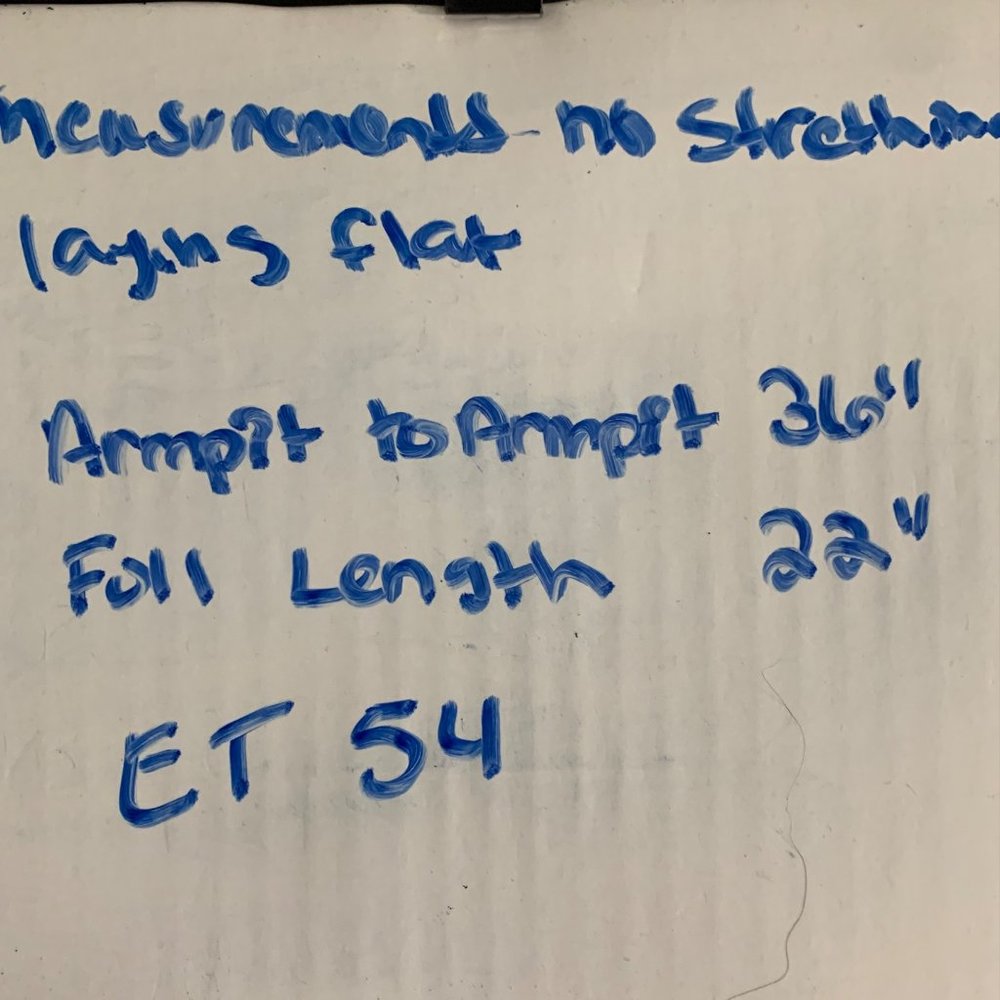 measurements no Strethin
laying flat
Armpit to Armpit 36"
Full Length 22"
ET 54